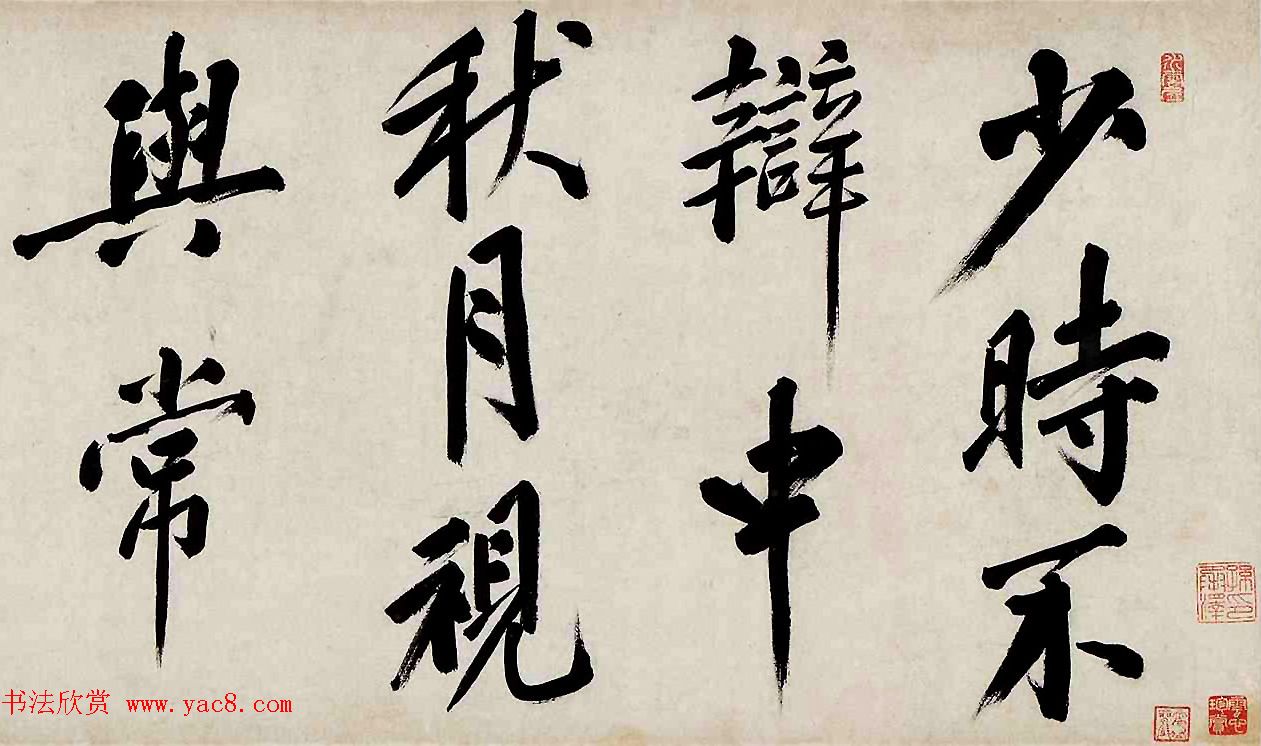 少時不
辯中
秋月視
與常
書法欣赏 www.yac8.com